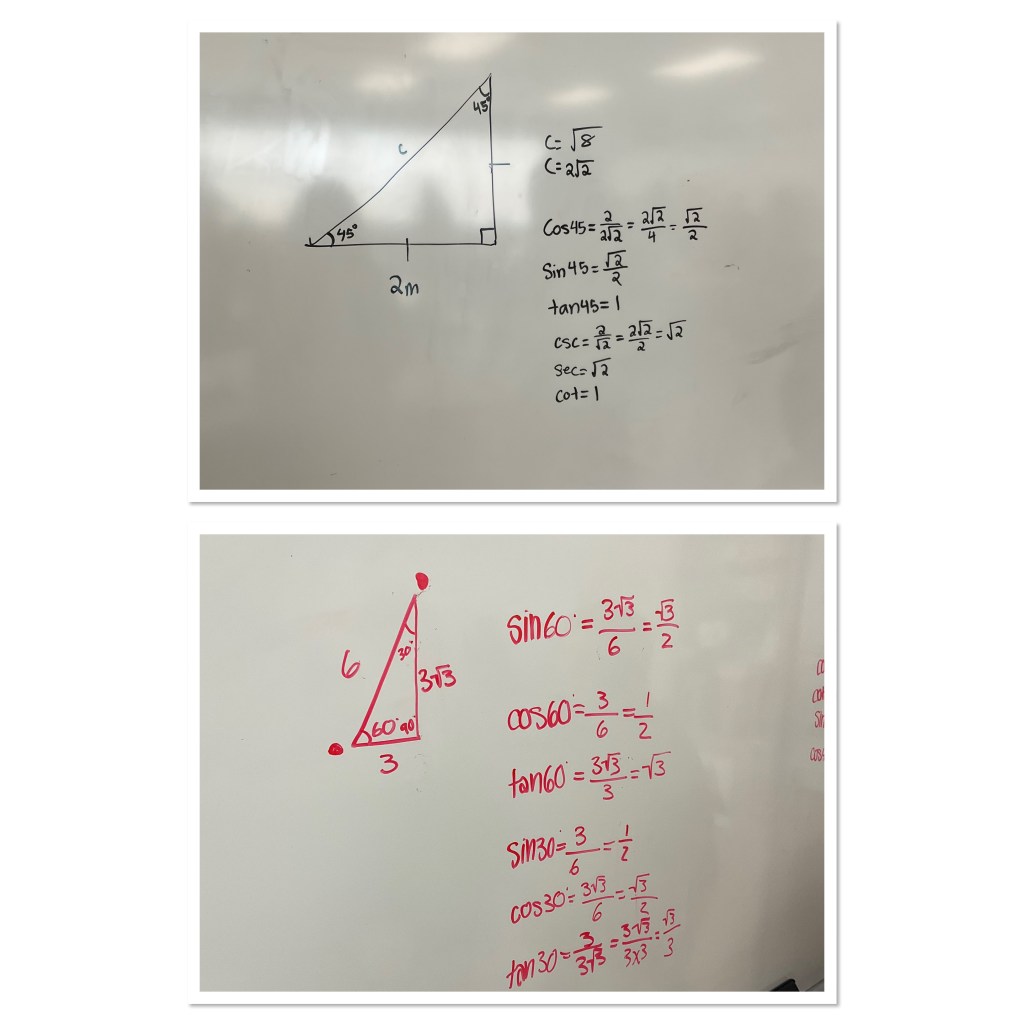 45°
c
45°
2m
C= √8
C= 2√2
Cos45= 2/2√2 = 2√2/4 = √2/2
Sin45= √2/2
tan45= 1
csc= 2/√2 = 2√2/2 = √2
sec= √2
cot= 1
6
30°
3√3
60° 90°
3
sin60° = 3√3/6 = √3/2
cos60° = 3/6 = 1/2
tan60° = 3√3/3 = √3
sin30 = 3/6 = 1/2
cos30° = 3√3/6 = √3/2
tan30 = 3/3√3 = 3√3/3x3 = √3/3